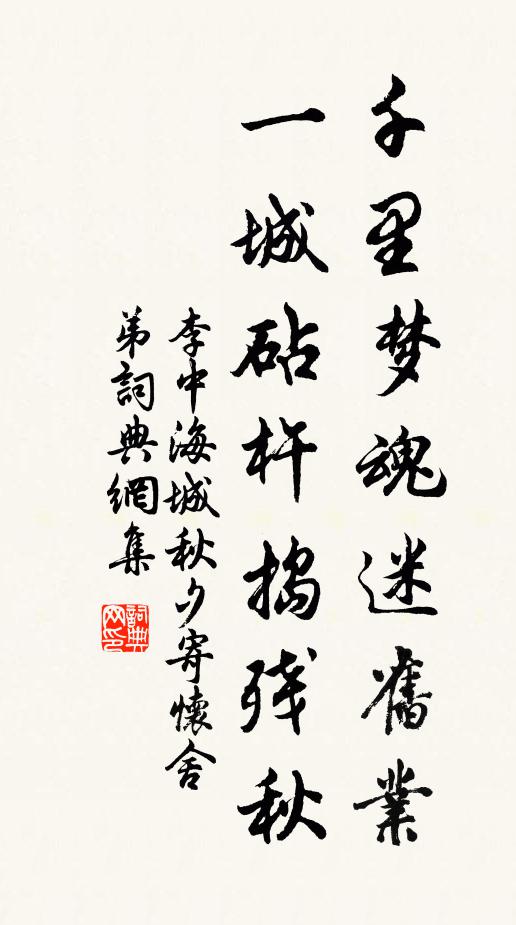 千里梦魂迷舊業
一城砧杵捣残秋
李中海城秋夕寄懷舍
弟詞典網集
詞典
网印